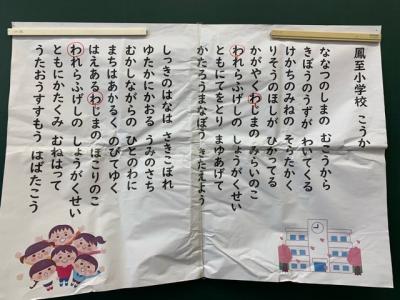 鳳至小学校 こうか
ななつのしまの むこうから
きぼうのうずが わいてくる
けかちのみねの そらたかく
りそうのほしが ひかってる
かがやくわじまの みらいのこ
われらふげしの しょうがくせい
ともにてをとり まゆあげて
かたろうまなぼう きたえよう
しっきのはなは さきこぼれ
ゆたかにかおる うみのさち
むかしながらの ひとのわに
まちはあかるく のびてゆく
はえあるわじまの ほこりのこ
われらふげしの しょうがくせい
ともにかたくみ むねはって
うたおうすすもう はばたこう